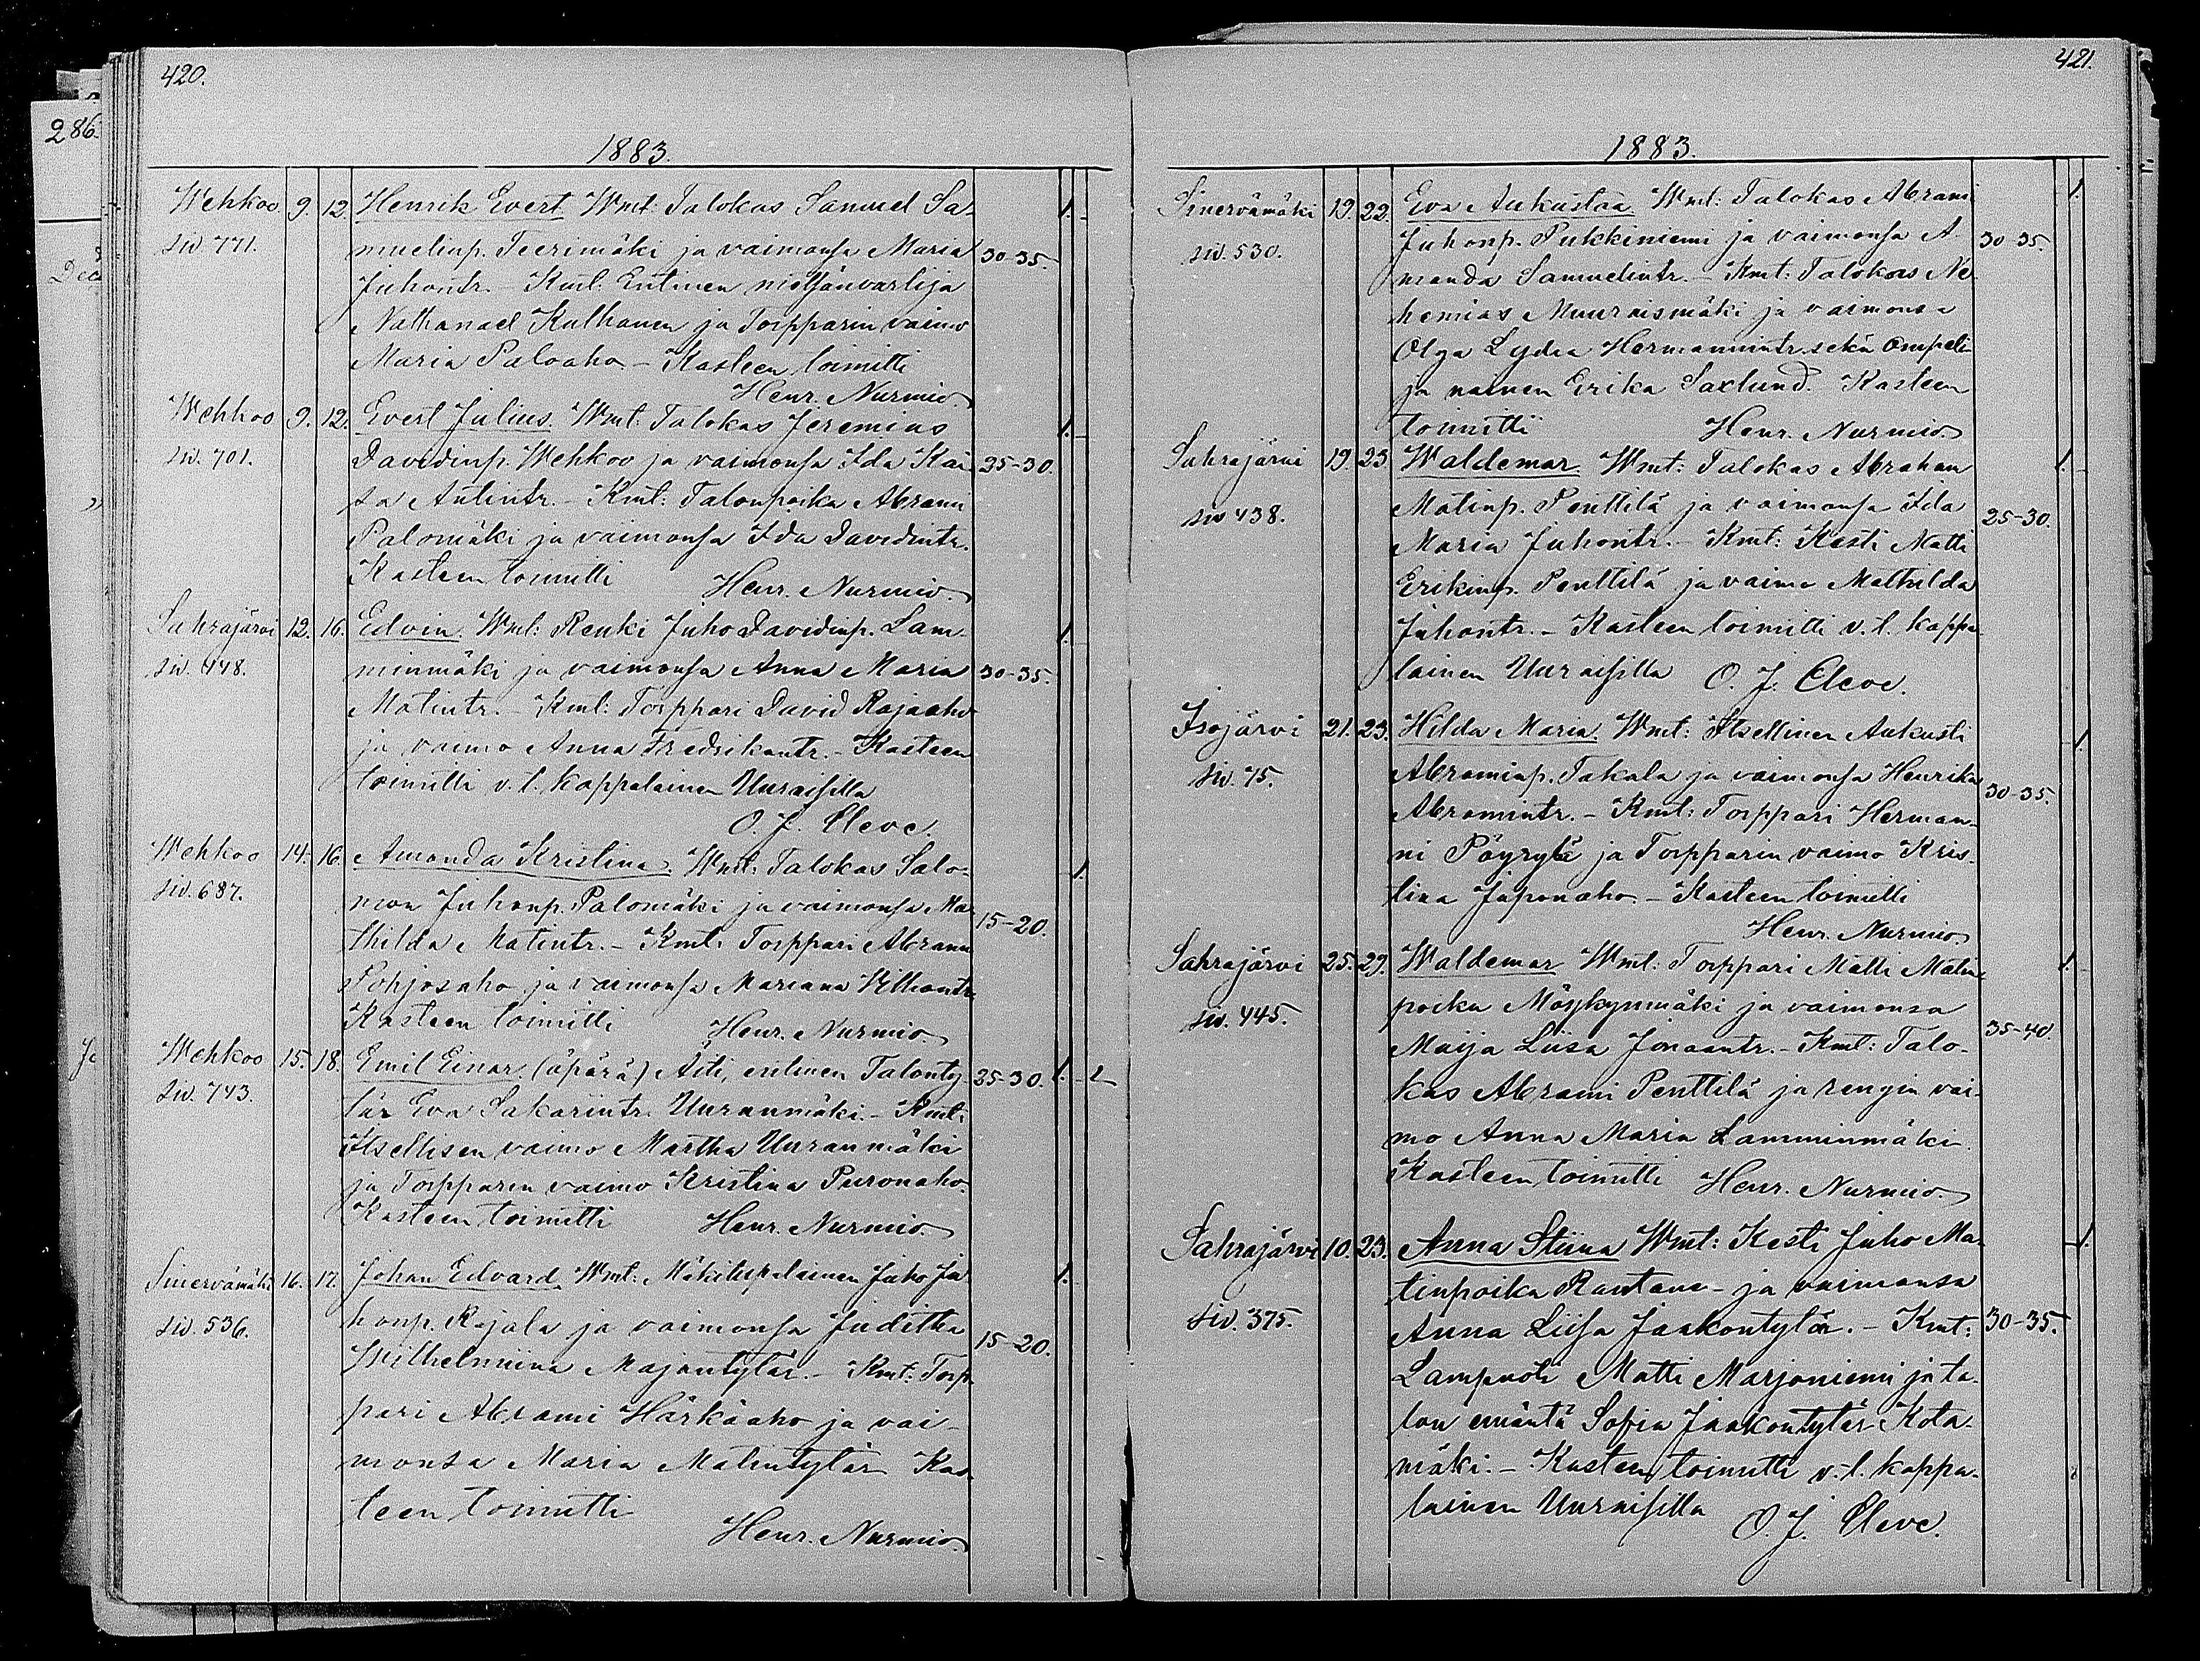 420.
286.
Dec
1883.
Wehkoo 9. 12. Henrik Evert Wmt: Talokas Samuel Sa-
siv. 771. muelinp. Teerimäki ja vaimonsa Maria 30-35. 1.
Juhontr. – Kmt: Entinen metsänvartija
Nathanael Kulhanen ja Torpparin vaimo
Maria Paloaho – Kasteen toimitti
Henr. Nurmio.
Wehkoo 9. 12. Evert Julius. Wmt: Talokas Jeremias 1.
siv. 701. Davidinp. Wehkoo ja vaimonsa Ida Kai- 25-30.
sa Antintr. – Kmt: Talonpoika Abram
Palomäki ja vaimonsa Ida Davidintr.
Kasteen toimitti Henr. Nurmio.
Sahrajärvi 12. 16. Edvin. Wmt: Renki Juho Davidinp. Lam- 1.
siv. 448. minmäki ja vaimonsa Anna Maria 30-35.
Matintr. – Kmt: Torppari David Rajaaho
ja vaimo Anna Fredrikantr. – Kasteen
toimitti v. t. kappalainen Uuraisilla
O. J. Cleve.
Wehkoo 14. 16. Amanda Kristina. Wmt: Talokas Salo- 1.
siv. 687. mon Juhonp. Palomäki ja vaimonsa Ma- 15-20.
thilda Matintr. – Kmt: Torppari Abram
Pohjosaho ja vaimonsa Mariana Wilhontr.
Kasteen toimitti Henr. Nurmio.
Wehkoo 15. 18. Emil Einar. (äpärä) Äiti, entinen Talonty- 25-30. 1.
siv. 743. tär Eva Sakarintr. Uuranmäki. – Kmt:
Itsellisen vaimo Martha Uuranmäki
ja Torpparin vaimo Kristina Puronaho.
Kasteen toimitti Henr. Nurmio.
Sinervämäki 16. 17. Johan Edvard. Wmt: Mäkitupalainen Juho Ju- 1.
siv. 536. honp. Rajala ja vaimonsa Juditha 15-20.
Wilhelmiina Majantytär. – Kmt: Torp-
pari Abrami Härkäaho ja vai-
monsa Maria Matintytär Kas-
teen toimitti
Henr. Nurmio.
421.
1883.
Sinervämäki 19. 22. Eva Aukustaa Wmt: Talokas Abrami 1.
siv. 530. Juhonp. Pukkiniemi ja vaimonsa A- 30-35.
manda Samuelintr. – Kmt: Talokas Ne-
hemias Muuraismäki ja vaimonsa
Olga Lydia Hermannintr. sekä Ompeli-
ja nainen Erika Saxlund. Kasteen
toimitti Henr. Nurmio.
Sahrajärvi 19. 23. Waldemar. Wmt: Talokas Abraham 1.
siv 438. Matinp. Penttilä ja vaimonsa Ida 25-30.
Maria Juhontr. – Kmt: Kesti Matti
Erikinp. Penttilä ja vaimo Mathilda
Juhontr. – Kasteen toimitti v. t. kappa-
lainen Uuraisilla O. J. Cleve.
Isojärvi 21. 23. Hilda Maria. Wmt: Itsellinen Aukusti 1.
siv. 75. Abraminp. Takala ja vaimonsa Henrika 30-35.
Abramintr. – Kmt: Torppari Herman-
ni Pöyrylä ja Torpparin vaimo Kris-
tina Juponaho. – Kasteen toimitti
Henr. Nurmio.
Sahrajärvi 25. 29. Waldemar Wmt: Torppari Matti Matin- 1.
siv. 445. poika Möyhynmäki ja vaimonsa 35-40.
Maija Liisa Jonaantr. – Kmt: Talo-
kas Abrami Penttilä ja rengin vai-
mo Anna Maria Lamminmäki
Kasteen toimitti Henr. Nurmio.
Sahrajärvi 10. 23. Anna Stiina Wmt: Kesti Juho Ma- 1.
siv. 375. tinpoika Rautano ja vaimonsa
Anna Liisa Jaakontytär. – Kmt: 30-35.
Lampuoti Matti Marjoniemi ja ta-
lon emäntä Sofia Jaakontytär Kota-
mäki. – Kasteen toimitti v. t. kappa-
lainen Uuraisilla O. J. Cleve.